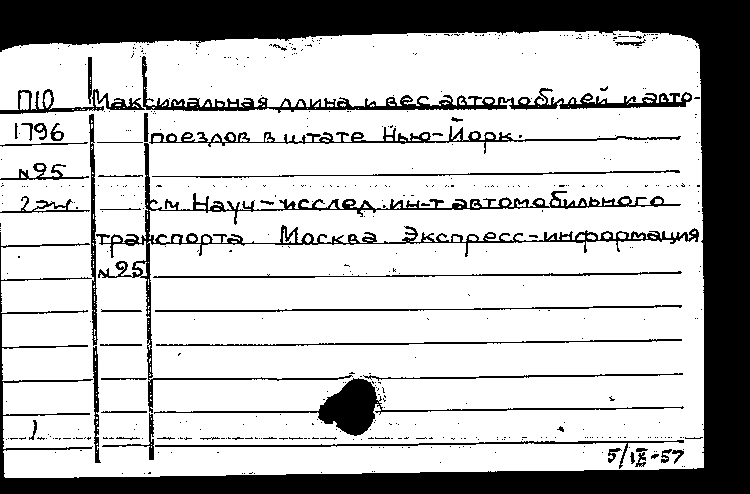 П10 Максимальная длина и вес автомобилей и авто-
1796 поездов в штате Нью-Йорк.
№25
2 экз. см. Науч-исслед. ин-т автомобильного
транспорта. Москва. Экспресс-информация
№25
5/IX-57